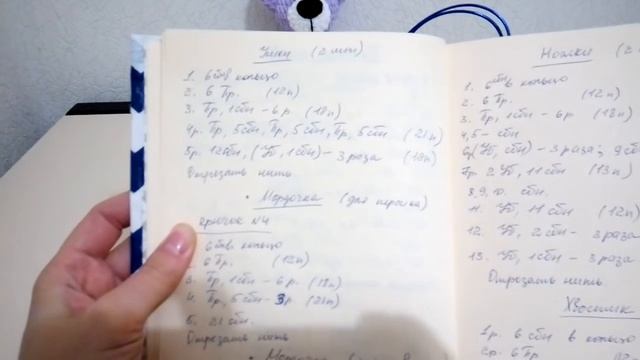 Ушки (2 шт)
1. 6 сбн в кольцо
2. 6 Пр. (12п)
3. Пр, 1сбн - 6 р. (18п)
4р. Пр, 5сбн, Пр, 5сбн, Пр, 5сбн (21п)
5р. 12сбн, (Уб, 1сбн) - 3 раза (18п)
Отрезать нить
• Мордочка (для
крючок №4
6 сбн в кольцо
6 Пр. (12п)
3. Пр, 1сбн - 6 р. (18п)
4. Пр, 5сбн - 3р. (21п)
5. 21 сбн.
Отрезать нить
Ножки (2
1. 6 сбн в кольцо
2. 6 Пр. (12п)
3. Пр, 1сбн - 6р (18п)
4,5 - сбн
6) (Уб, сбн) - 3 раза; 9 сб
7р. 2 Уб, 11 сбн (13п)
8,9,10. сбн.
11. Уб, 11 сбн (12п)
12. Уб, 2сбн - 3 раза
13. Уб, 1сбн - 3 раза
Отрезать нить
Хвостик
1р. 6 сбн в кольцо
2р. 6 Пр